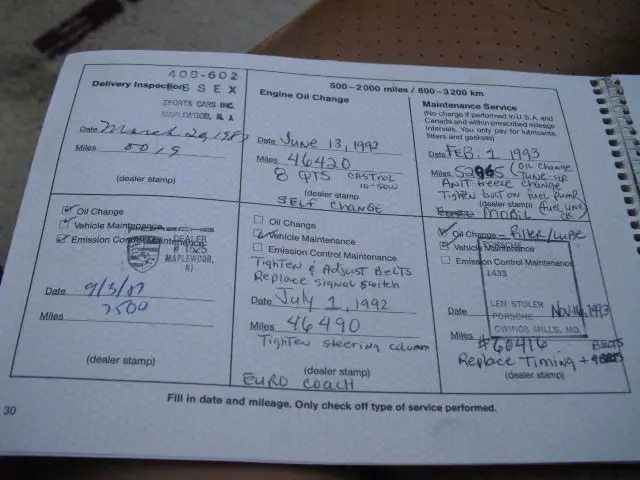 408-602
ESSEX
SPORTS CARS INC.
MAPLEWOOD, N.J.
Delivery Inspection
Date March 20, 1987
Miles 0019
(dealer stamp)
500-2000 miles / 800-3200 km
Engine Oil Change
Date June 13, 1992
Miles 46420
8 QTS CASTROL
10-50W
(dealer stamp
SELF CHANGE
Maintenance Service
(No charge if performed in U.S.A. and
Canada and within prescribed mileage
intervals. You only pay for lubricants,
filters and gaskets)
Date FEB. 1 1993
Miles 52965 (OIL CHANGE
TUNE-UP
ANTI freeze change
Tighten bolt on fuel pump
(dealer stamp) (fuel line
MOBIL OK)
Oil Change
Vehicle Maintenance
Emission Control Maintenance
DEALER
# 1525
MAPLEWOOD,
NJ
Date 9/3/87
Miles 7500
(dealer stamp)
Oil Change
Vehicle Maintenance
Emission Control Maintenance
Tighten & Adjust BELTS
Replace signal switch
Date July 1, 1992
Miles 46490
Tighten steering column
(dealer stamp)
EURO COACH
Oil Change - Filter/Lube
Vehicle Maintenance
Emission Control Maintenance
PORSCHE
1433
LEN STOLER
PORSCHE
OWINGS MILLS, MD.
Date Nov 16, 1993
Miles #60416
BELTS
Replace Timing +
(dealer stamp)
Fill in date and mileage. Only check off type of service performed.
30